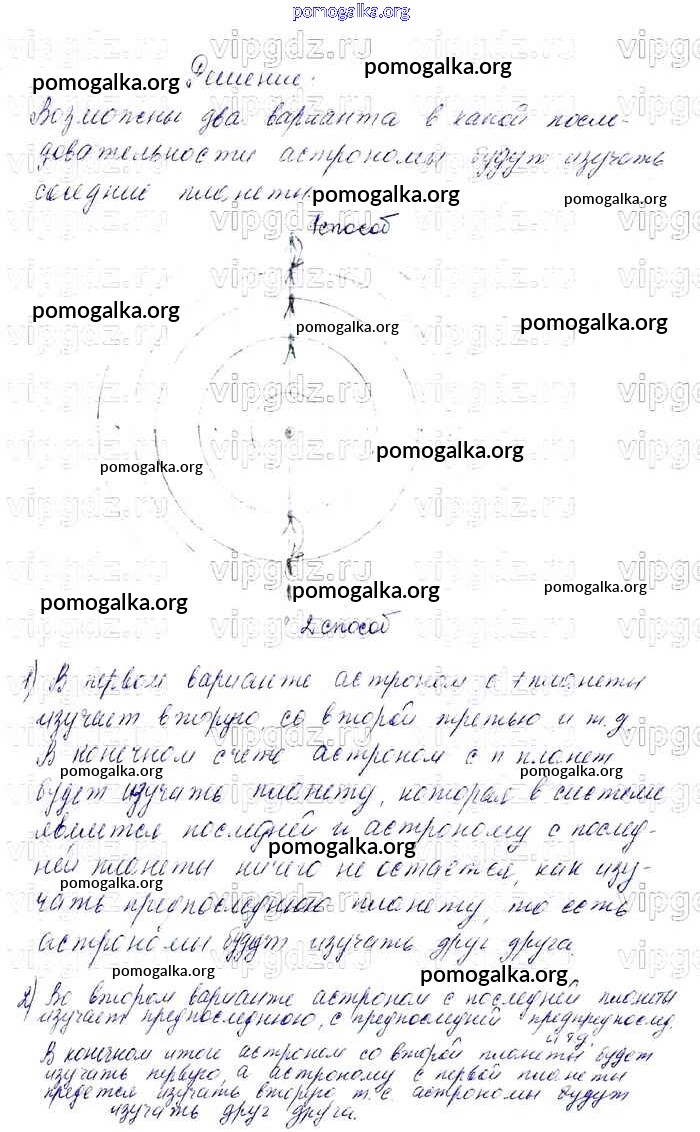 pomogalka.org
Решение.
Возможны два варианта в какой после-
довательности астрономы будут изучать
соседние планеты
1 способ
2 способ
1) В первом варианте астроном с 1 планеты
изучает вторую, со второй третью и т.д.
В конечном счете астроном с n планет
будет изучать планету, которая в системе
является последней и астроному с послед-
ней планеты ничего не остается, как изу-
чать предпоследнюю планету, то есть
астрономы будут изучать друг друга.
2) Во втором варианте астроном с последней планеты
изучает предпоследнюю, с предпоследней предпредпослед.
и т.д.
В конечном итоге астроном со второй планеты будет
изучать первую, а астроному с первой планеты
придется изучать вторую т.е. астрономы будут
изучать друг друга.